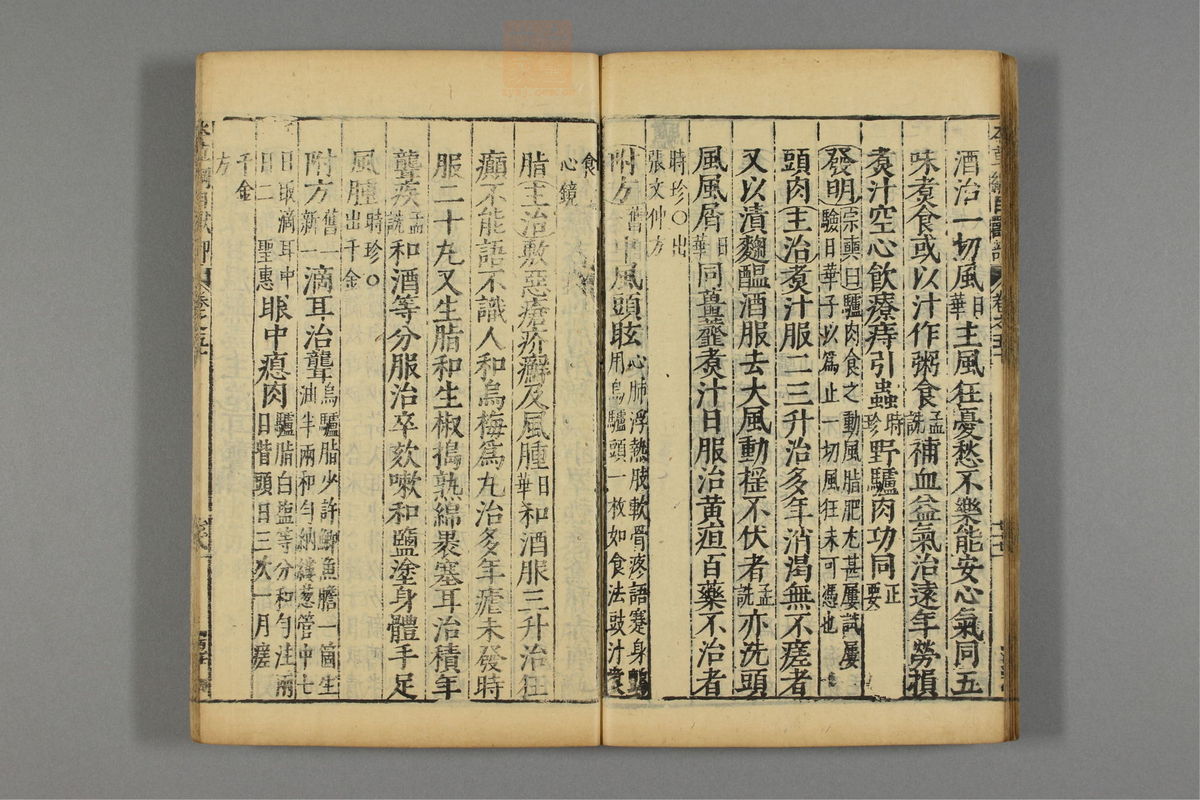 酒治一切風日華主風狂憂愁不樂能安心氣同五
味煮食或以汁作粥食孟詵補血益氣治遠年勞損
煮汁空心飲療痔引蟲時珍野驢肉功同正要
發明宗奭曰驢肉食之動風脂肥尤甚屢試屢
驗日華子以爲止一切風狂未可憑也
頭肉主治煮汁服二三升治多年消渴無不瘥者
又以漬麴醖酒服去大風動搖不伏者孟詵亦洗頭
風風屑日華同薑虀煮汁日服治黄疸百藥不治者
時珍〇出
張文仲方
附方舊一中風頭眩心肺浮熱肢軟骨疼語蹇身顫
用烏驢頭一枚如食法豉汁煮
食
心鏡
脂主治敷惡瘡疥癬及風腫日華和酒服三升治狂
癲不能語不識人和烏梅爲丸治多年瘧未發時
服二十丸又生脂和生椒搗熟綿裹塞耳治積年
聾疾孟詵和酒等分服治卒欬嗽和鹽塗身體手足
風腫時珍〇出千金
附方舊一新一滴耳治聾烏驢脂少許鯽魚膽一箇生
油半兩和勻納縷葱管中七
日取滴耳中
日二聖惠眼中瘜肉驢脂白鹽等分和勻注兩
目眥頭日三次一月瘥
千金
方